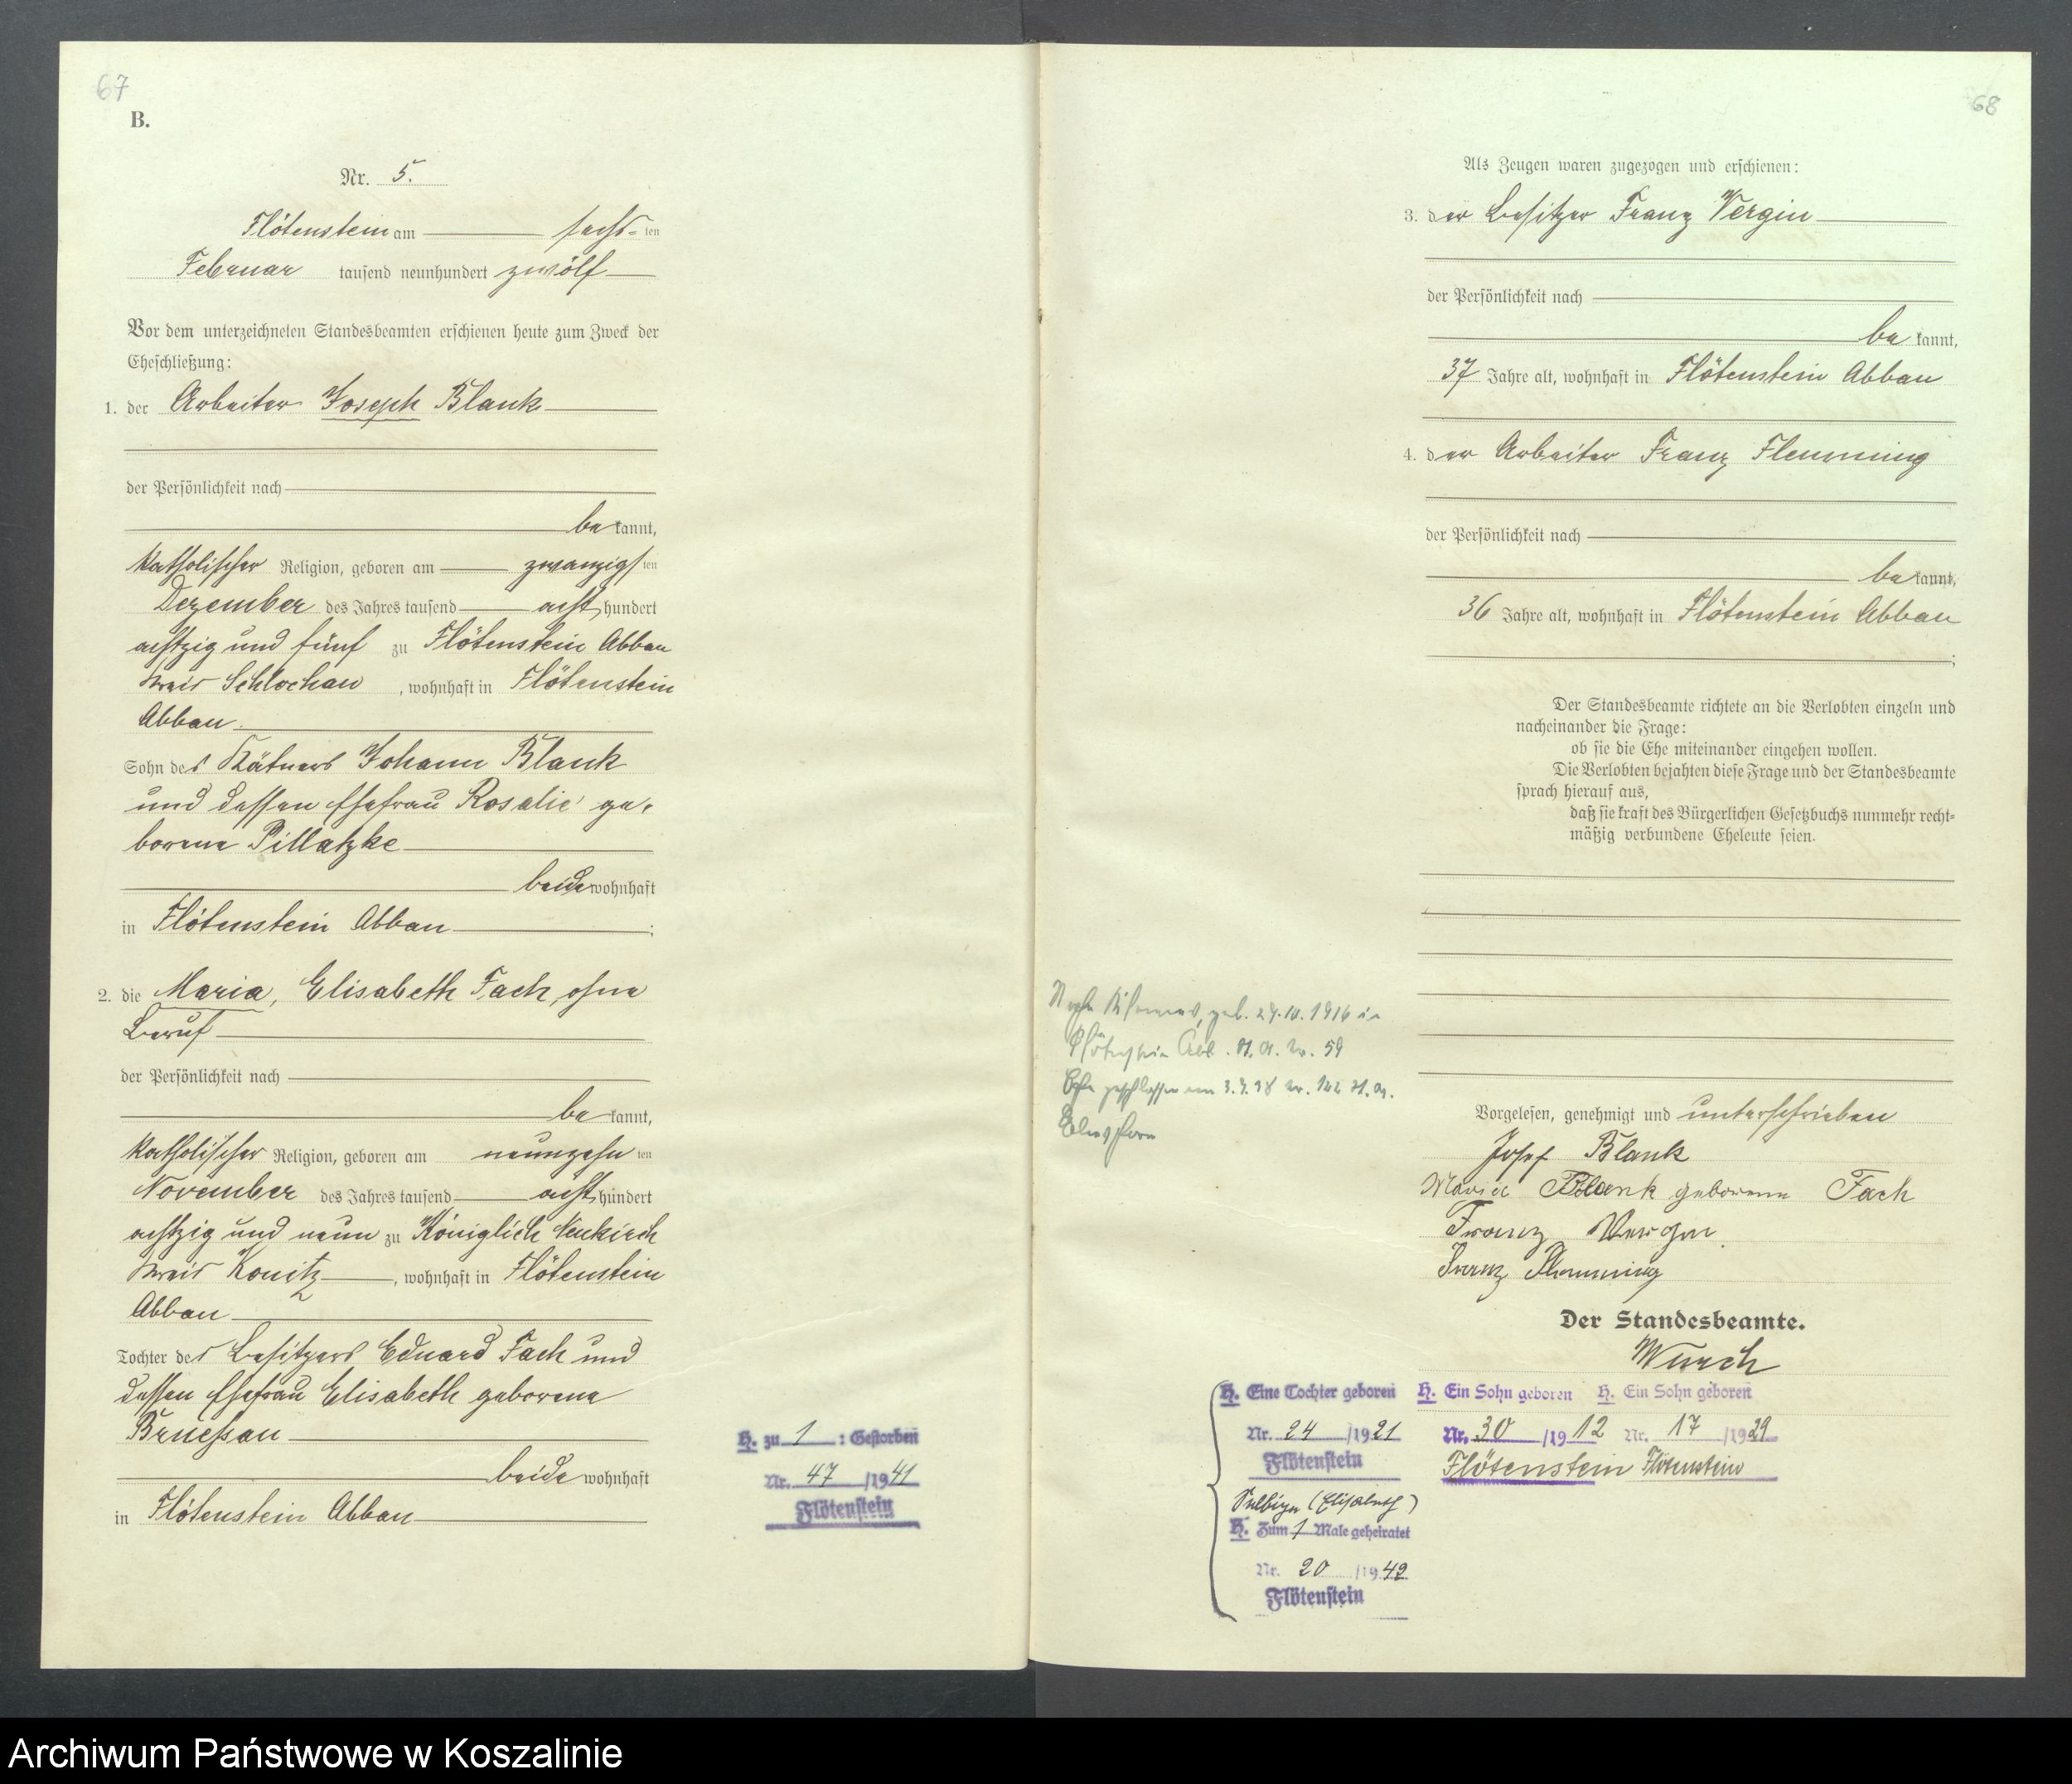 67
B.
Nr. 5.
Flötenstein am sechs-ten
Februar tausend neunhundert zwölf
Vor dem unterzeichneten Standesbeamten erschienen heute zum Zweck der
Eheschließung:
1. der Arbeiter Joseph Blank
der Persönlichkeit nach
be kannt,
katholischer Religion, geboren am zwanzigsten
Dezember des Jahres tausend acht hundert
achtzig und fünf zu Flötenstein Abbau
Kreis Schlochau, wohnhaft in Flötenstein
Abbau
Sohn des Kätners Johann Blank
und dessen Ehefrau Rosalie ge-
borene Pillatzke
beide wohnhaft
in Flötenstein Abbau;
2. die Maria, Elisabeth Fach, ohne
Beruf
der Persönlichkeit nach
be kannt,
katholischer Religion, geboren am neunzehn ten
November des Jahres tausend acht hundert
achtzig und neun zu Königlich Neukirch
Kreis Konitz, wohnhaft in Flötenstein
Abbau
Tochter des Besitzers Eduard Fach und
dessen Ehefrau Elisabeth geborene
beide wohnhaft
in Flötenstein Abbau
H. zu 1 : Gestorben
Nr. 47 /1941
Flötenstein
68
Als Zeugen waren zugezogen und erschienen:
3. der Besitzer Franz Vergin
der Persönlichkeit nach
be kannt,
37 Jahre alt, wohnhaft in Flötenstein Abbau
4. der Arbeiter Franz Flemming
der Persönlichkeit nach
be kannt,
36 Jahre alt, wohnhaft in Flötenstein Abbau
;
Der Standesbeamte richtete an die Verlobten einzeln und
nacheinander die Frage:
ob sie die Ehe miteinander eingehen wollen.
Die Verlobten bejahten diese Frage und der Standesbeamte
sprach hierauf aus,
daß sie kraft des Bürgerlichen Gesetzbuchs nunmehr recht-
mäßig verbundene Eheleute seien.
geb. 1916 in
Abb. Nr. 59
Ehe geschlossen am
Vorgelesen, genehmigt und unterschrieben
Josef Blank
Maria Blank geborene Fach
Franz Vergin
Franz Flemming
Der Standesbeamte.
Wurch
H. Eine Tochter geboren
Nr. 24 /1921
Flötenstein
Dieselbige (Elisabeth)
H. Zum 1 Male geheiratet
Nr. 20 /1942
Flötenstein
H. Ein Sohn geboren
Nr. 30 /1912
Flötenstein
H. Ein Sohn geboren
Nr. 17 /1929
Flötenstein
Archiwum Państwowe w Koszalinie